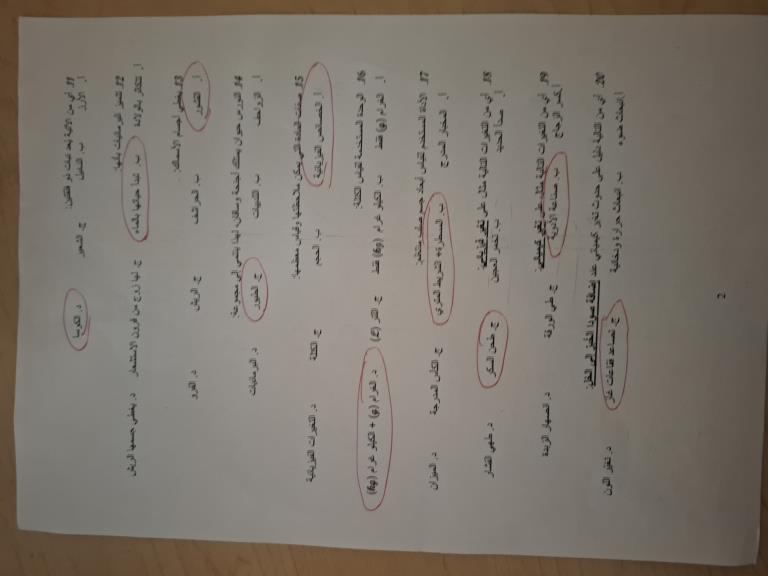 11. أي من الآتية يعد نبات ذو فلقتين:
أ. الأرز ب. النخيل ج. الشعير د. الكوسا
12. تتميز البرمائيات بأنها:
أ. تتكاثر بالولادة ب. تبدأ حياتها بالماء ج. لها زوج من قرون الاستشعار د. يغطي جسمها الريش
13. يغطي أجسام الأسماك:
أ. القشور ب. الحراشف ج. الريش د. الفرو
14. النورس حيوان يمتلك أجنحة وساقان، لهذا ينتمي إلى مجموعة:
أ. الزواحف ب. الثدييات ج. الطيور د. البرمائيات
15. صفات المادة التي يمكن ملاحظتها وقياس معظمها:
أ. الخصائص الفيزيائية ب. الحجم ج. الكتلة د. التغيرات الفيزيائية
16. الوحدة المستخدمة لقياس الكتلة:
أ. الغرام (g) فقط ب. الكيلو غرام (kg) فقط ج. اللتر (L) د. الغرام (g) + الكيلو غرام (kg)
17. الأداة المستخدم لقياس أبعاد جسم صلب منتظم:
أ. المخبار المدرج ب. المسطرة + الشريط المتري ج. الكأس المدرجة د. الميزان
18. أي من التغيرات التالية مثال على تغير فيزيائي:
أ. صدأ الحديد ب. تخمر العجين ج. طحن السكر د. طهي الفشار
19. أي من التغيرات التالية مثال على تغير كيميائي:
أ. كسر الزجاج ب. صناعة الأدوية ج. طي الورقة د. انصهار الزبدة
20. أي من التالية دليل على حدوث تغير كيميائي عند إضافة صودا الخبز إلى الخل:
أ. انبعاث ضوء ب. انبعاث حرارة ودخانية ج. تصاعد فقاعات غاز د. تغير اللون
2